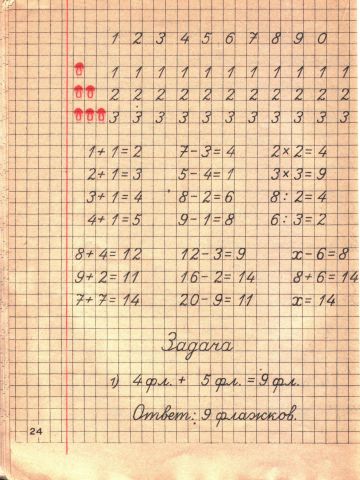 1 2 3 4 5 6 7 8 9 0
1 1 1 1 1 1 1 1 1 1 1
2 2 2 2 2 2 2 2 2 2 2
3 3 3 3 3 3 3 3 3 3 3
1 + 1 = 2 7 - 3 = 4 2 × 2 = 4
2 + 1 = 3 5 - 4 = 1 3 × 3 = 9
3 + 1 = 4 8 - 2 = 6 8 : 2 = 4
4 + 1 = 5 9 - 1 = 8 6 : 3 = 2
8 + 4 = 12 12 - 3 = 9 x - 6 = 8
9 + 2 = 11 16 - 2 = 14 8 + 6 = 14
7 + 7 = 14 20 - 9 = 11 x = 14
Задача
1) 4 фл. + 5 фл. = 9 фл.
Ответ: 9 флажков.
24